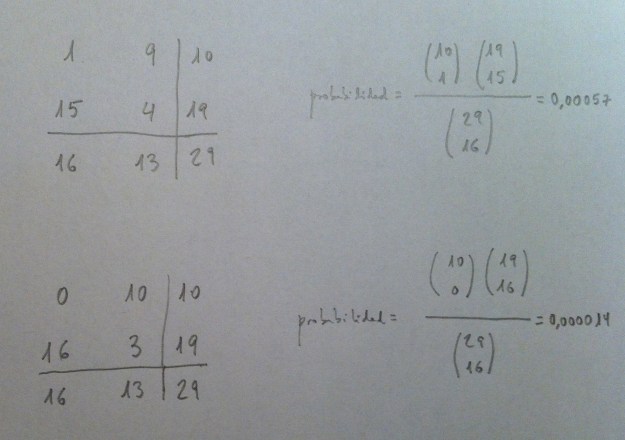 1 9 10
15 4 19
16 13 29
probabilidad = (10 1) (19 15) / (29 16) = 0,00057
0 10 10
16 3 19
16 13 29
probabilidad = (10 0) (19 16) / (29 16) = 0,000014